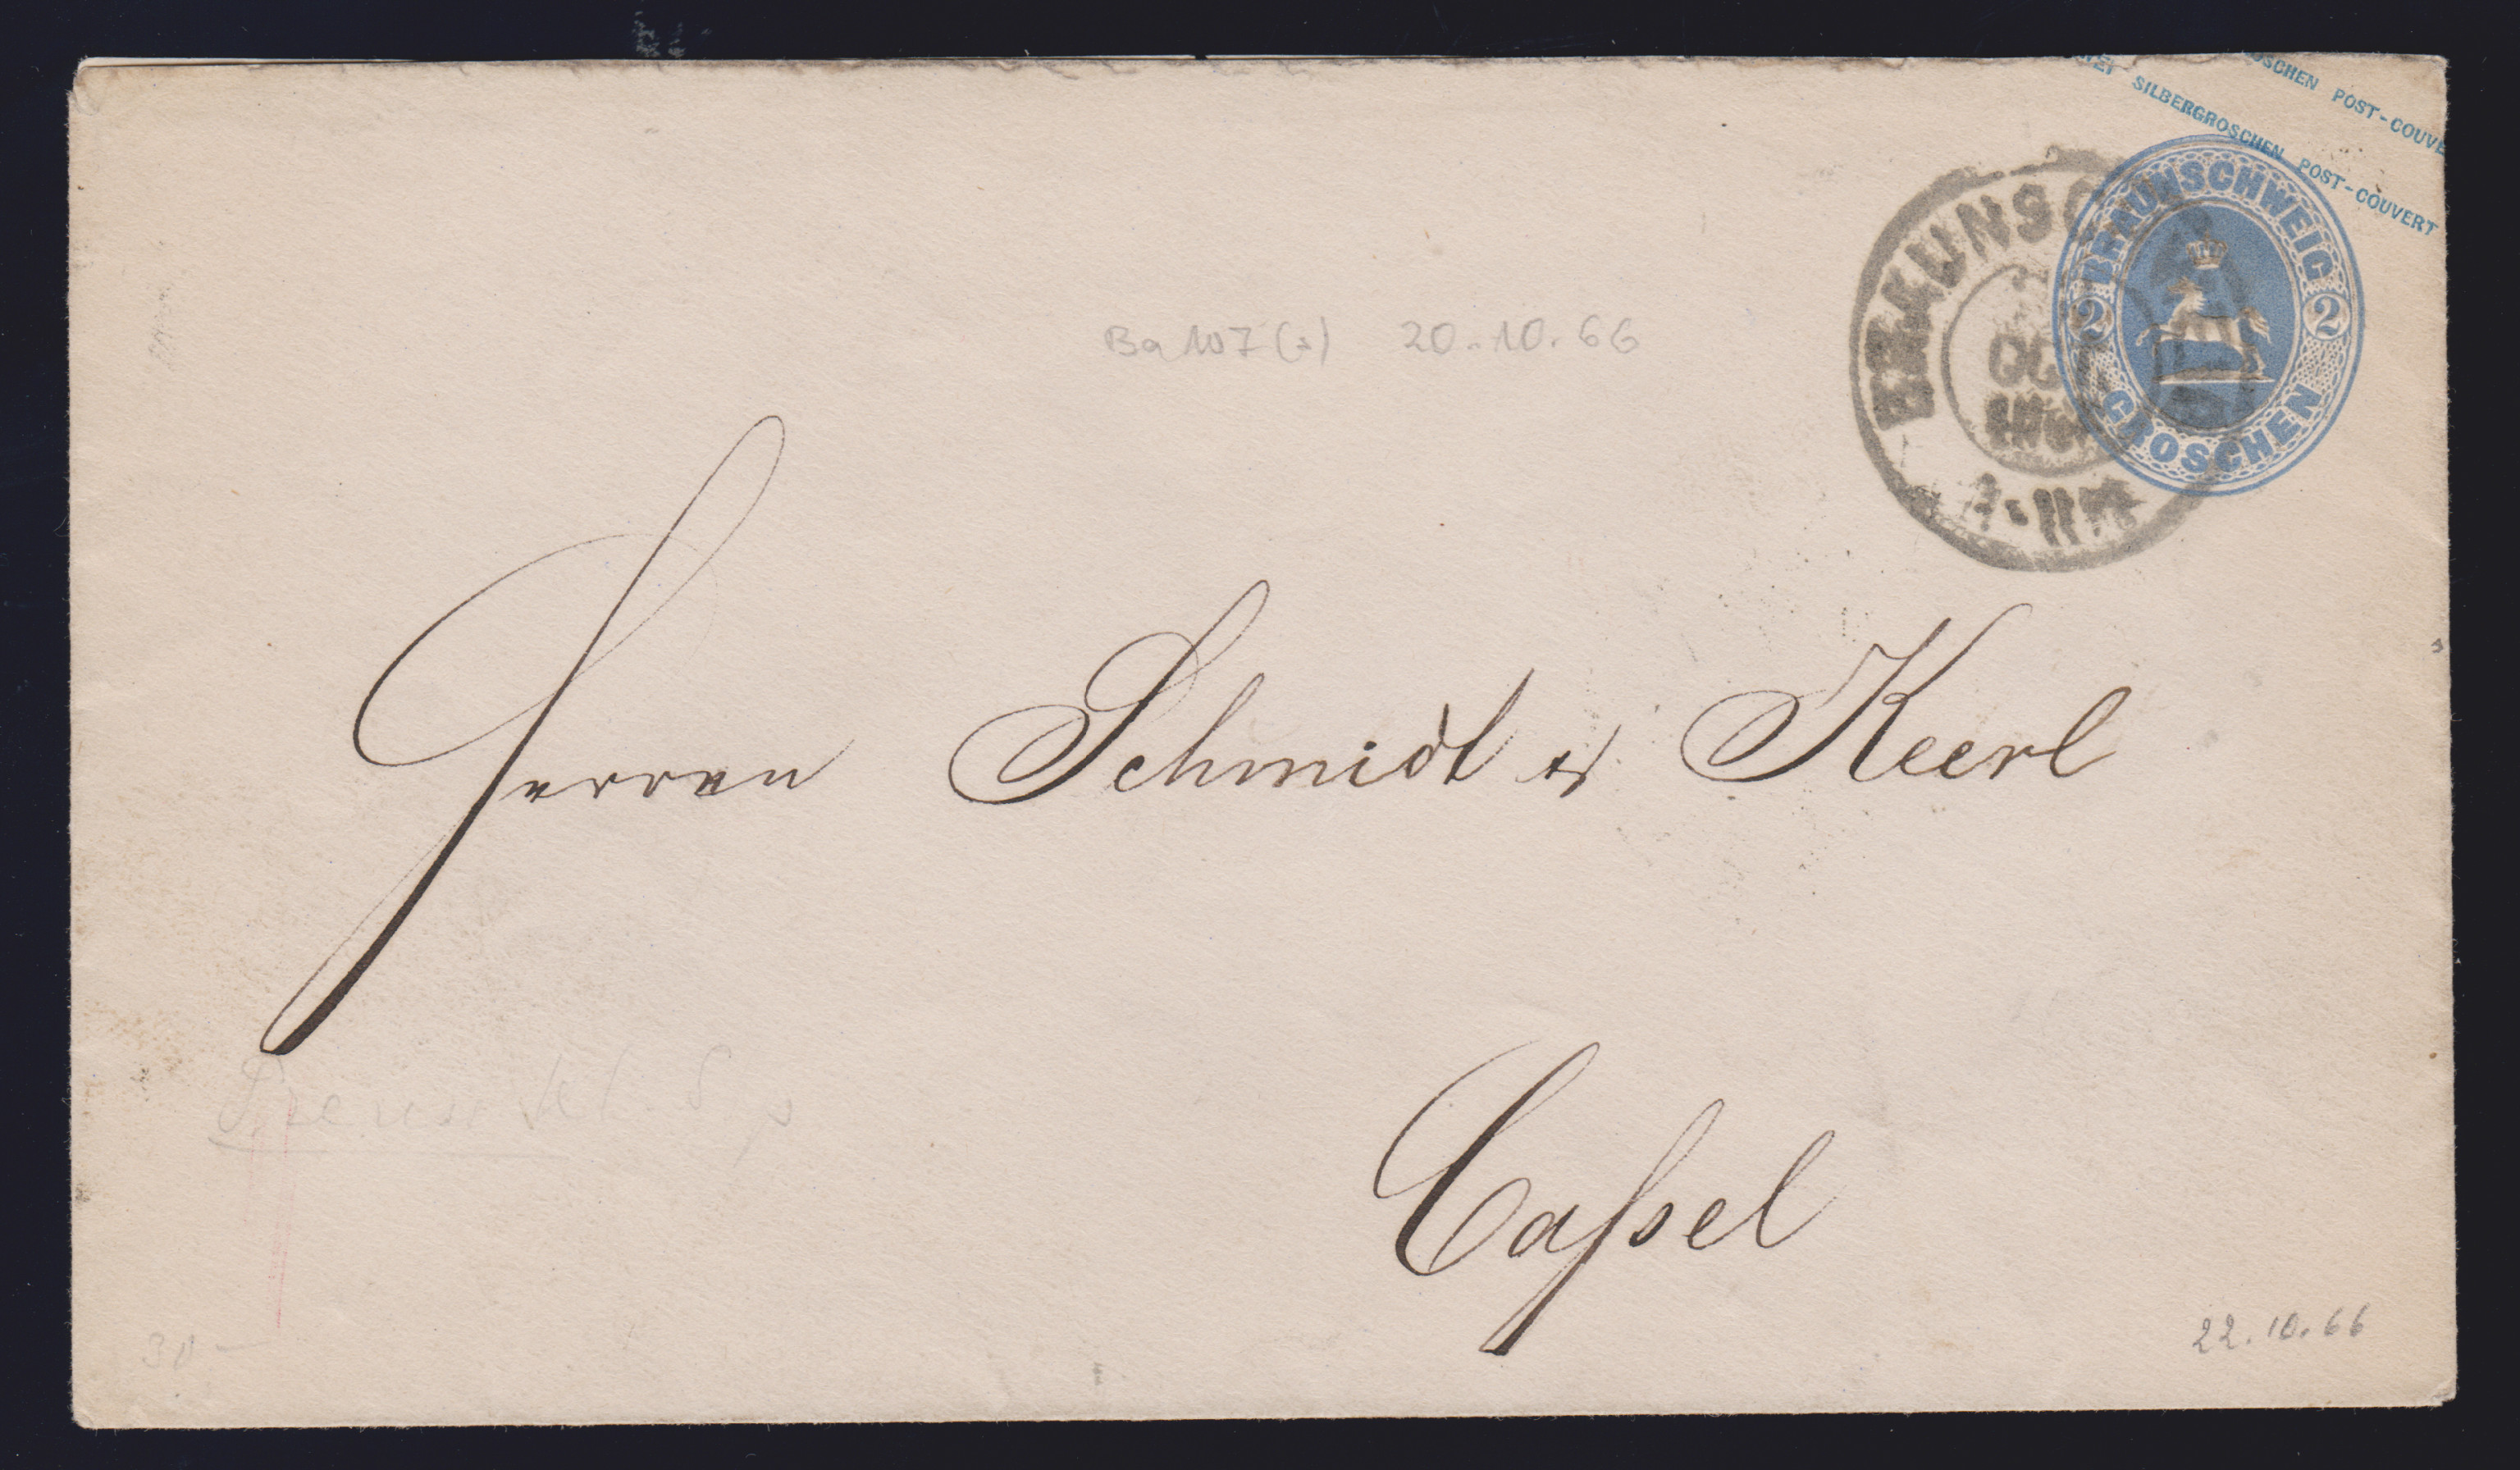 SCHEN POST-COUVE
SILBERGROSCHEN POST-COUVERT
BRAUNSCHWEIG
2 2
GROSCHEN
BRAUNSC
OC
20.10.66
Herren Schmidt & Keerl
Caſsel
22.10.66